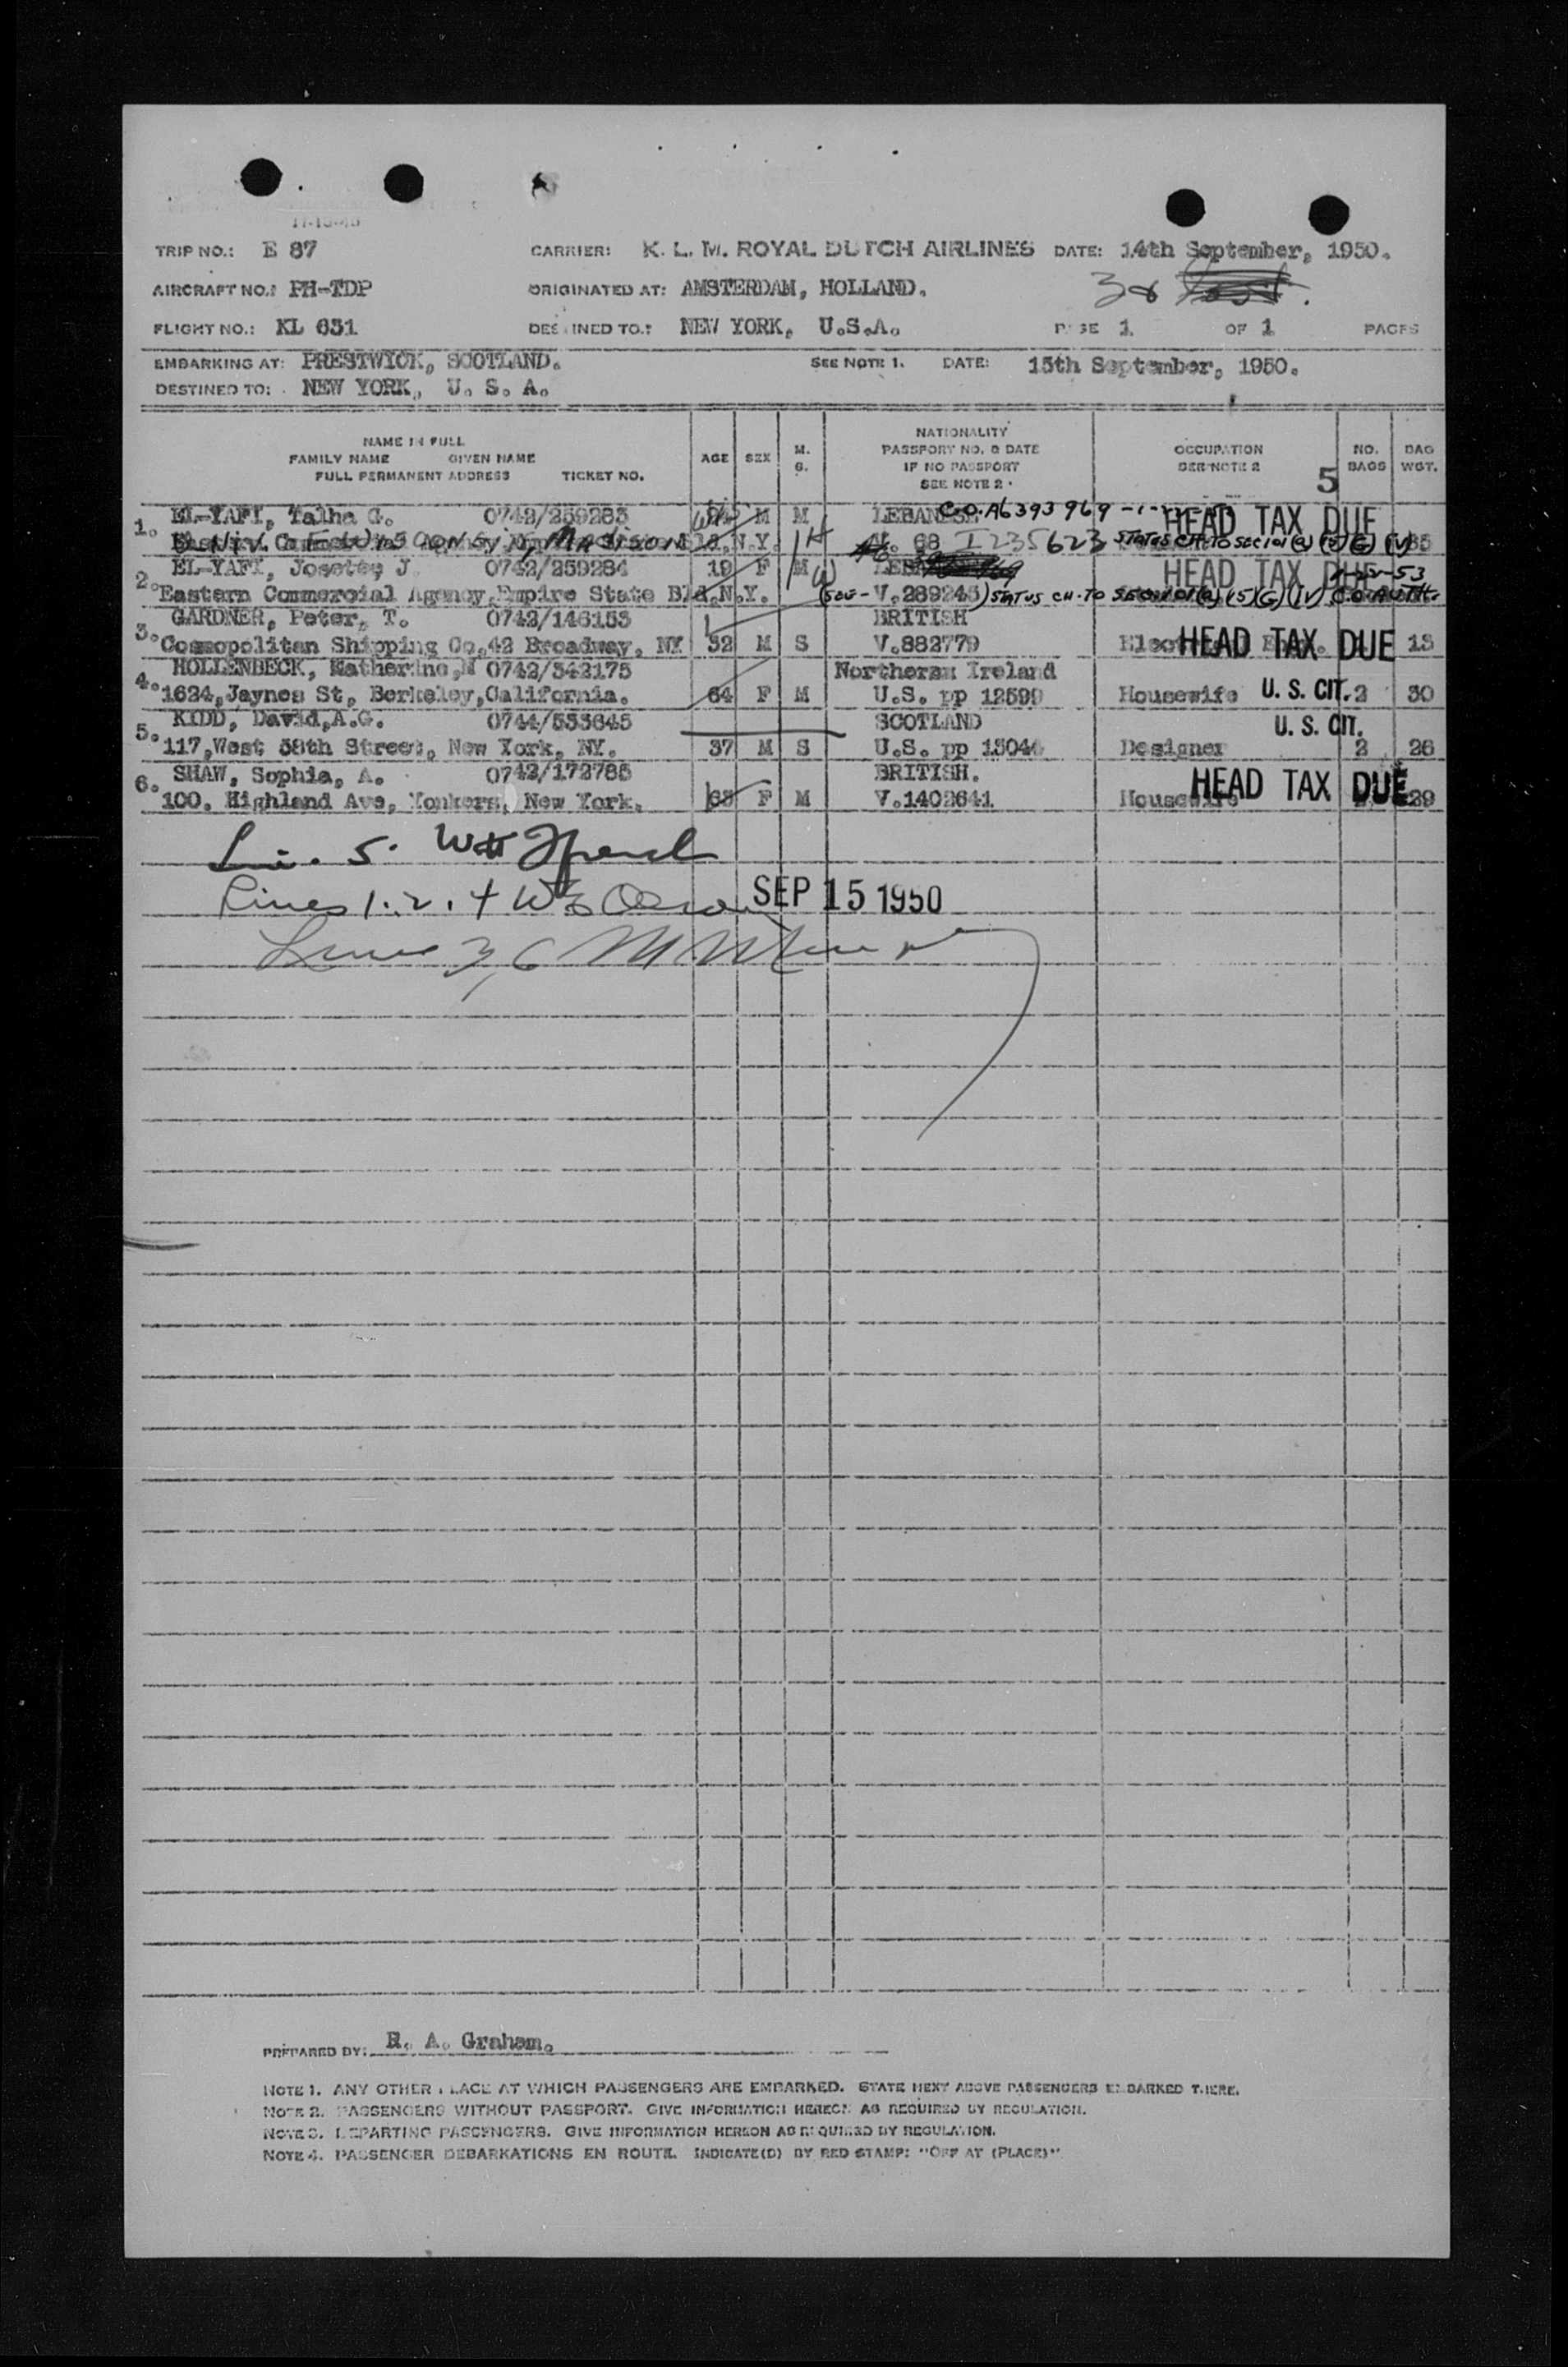 TRIP NO.: E 87 CARRIER: K. L. M. ROYAL DUTCH AIRLINES DATE: 14th September, 1950.
AIRCRAFT NO.: PH-TDP ORIGINATED AT: AMSTERDAM, HOLLAND.
FLIGHT NO.: KL 631 DESTINED TO: NEW YORK, U.S.A. PAGE 1 OF 1 PAGES
EMBARKING AT: PRESTWICK, SCOTLAND. SEE NOTE 1. DATE: 15th September, 1950.
DESTINED TO: NEW YORK, U. S. A.
NAME IN FULL
FAMILY NAME GIVEN NAME
FULL PERMANENT ADDRESS TICKET NO.
AGE SEX M. S.
NATIONALITY
PASSPORT NO. & DATE
IF NO PASSPORT
SEE NOTE 2
OCCUPATION
SEE NOTE 2
NO. BAGS
BAG WGT.
5
1. EL-YAFI, Talha G. 0742/259283 M M LEBANESE C.O. A6393969 HEAD TAX DUE
UNIV. OF WISCONSIN, MADISON N.Y. 68 I 235623 STATUS CH. TO SEC 101 (a) (15) (G) (IV) 35
2. EL-YAFI, Josette, J. 0742/259284 19 F M HEAD TAX DUE
Eastern Commercial Agency, Empire State Bld, N.Y. V.289245 STATUS CH. TO SEC 101 (a) (15) (G) (IV) C.O. AUTH.
3. GARDNER, Peter, T. 0742/146153 BRITISH
Cosmopolitan Shipping Co, 42 Broadway, NY 32 M S V.882779 HEAD TAX DUE 13
4. HOLLENBECK, Katherine, M 0742/342175 Northern Ireland
1624, Jaynes St, Berkeley, California. 64 F M U.S. pp 12599 Housewife U. S. CIT. 2 30
5. KIDD, David, A.G. 0744/533645 SCOTLAND U. S. CIT.
117, West 58th Street, New York, NY. 37 M S U.S. pp 15046 Designer 2 26
6. SHAW, Sophia, A. 0742/172785 BRITISH.
100, Highland Ave, Yonkers, New York. 68 F M V.1402641 Housewife HEAD TAX DUE 29
Lin. 5.
Lines 1. 2. 4 SEP 15 1950
Lines 3, 6
PREPARED BY: R. A. Graham.
NOTE 1. ANY OTHER PLACE AT WHICH PASSENGERS ARE EMBARKED. STATE NEXT ABOVE PASSENGERS EMBARKED THERE.
NOTE 2. PASSENGERS WITHOUT PASSPORT. GIVE INFORMATION HEREON AS REQUIRED BY REGULATION.
NOTE 3. DEPARTING PASSENGERS. GIVE INFORMATION HEREON AS REQUIRED BY REGULATION.
NOTE 4. PASSENGER DEBARKATIONS EN ROUTE. INDICATE(D) BY RED STAMP: "OFF AT (PLACE)"